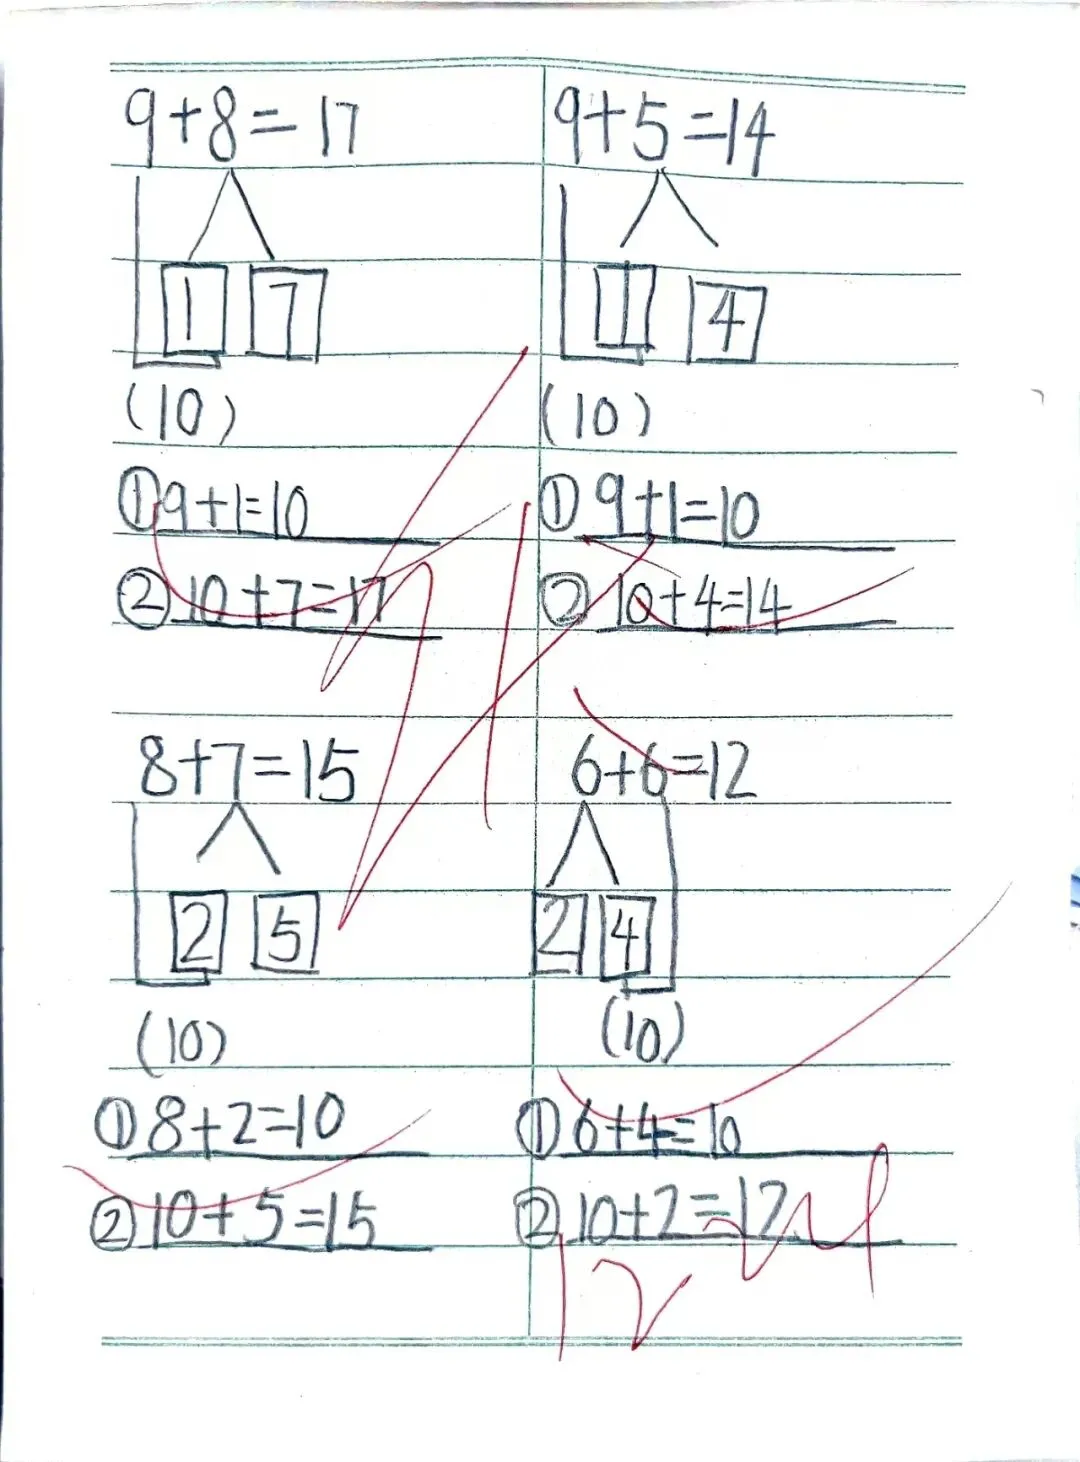 9+8=17
1 7
(10)
①9+1=10
②10+7=17
9+5=14
1 4
(10)
①9+1=10
②10+4=14
8+7=15
2 5
(10)
①8+2=10
②10+5=15
6+6=12
2 4
(10)
①6+4=10
②10+2=12